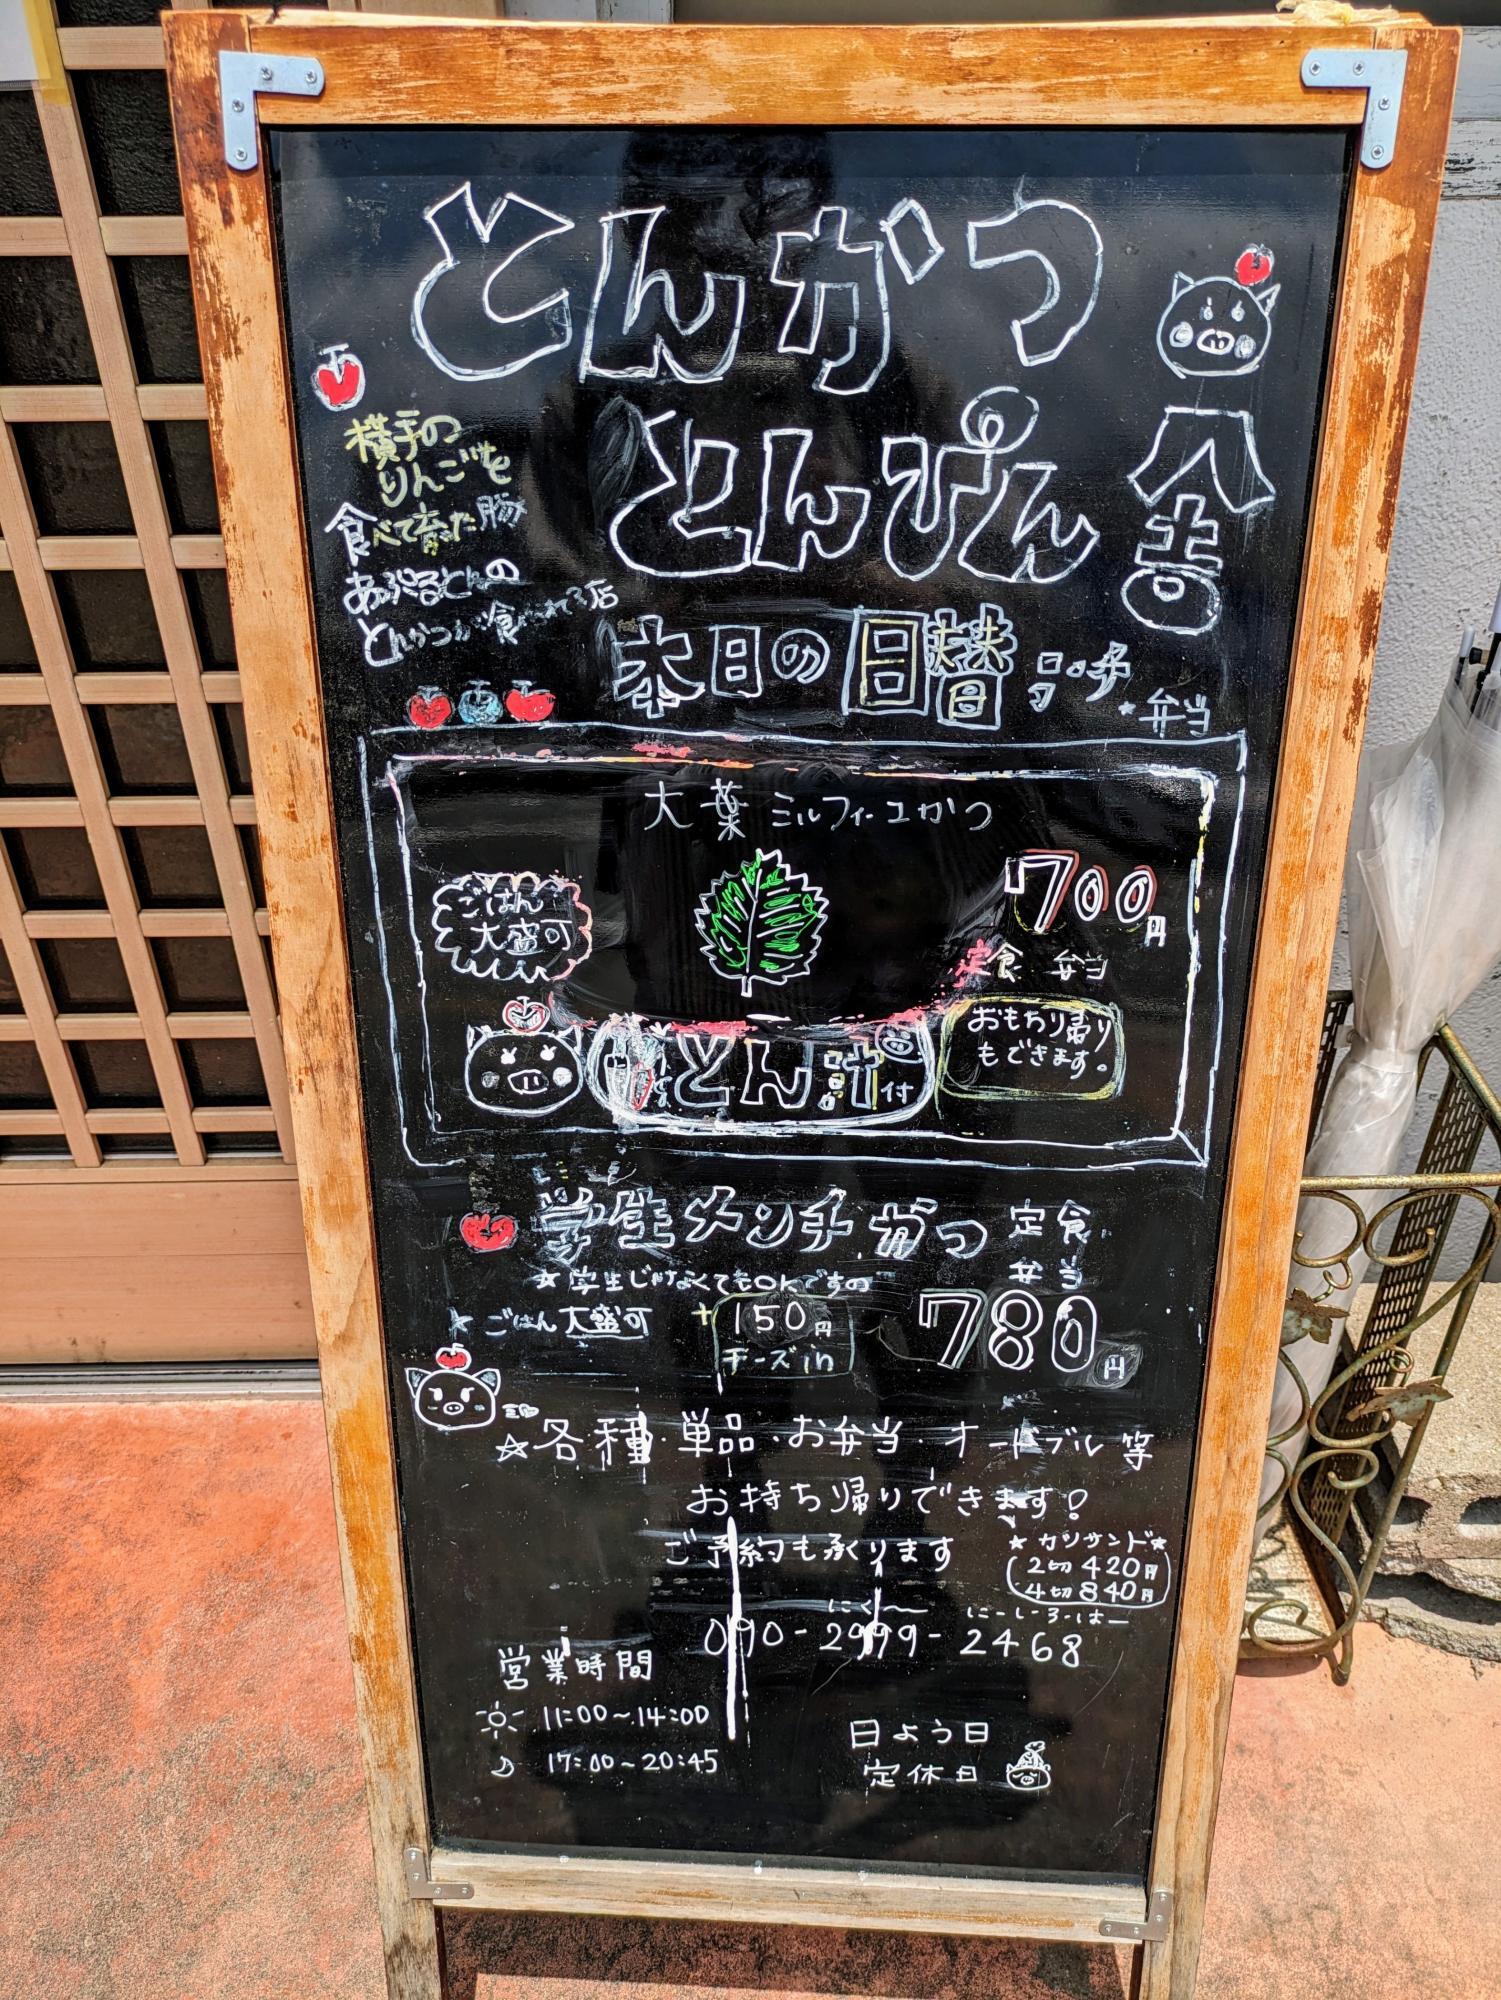 とんかつ
とんぴん舎
横手の
りんごを
食べて育った豚
あっぷるとんの
とんかつが食べられる店
本日の日替ランチ
・弁当
大葉ミルフィーユかつ
ごはん
大盛可
700円
定食 弁当
とん汁付
おもちり帰り
もできます。
学生メンチかつ 定食
弁当
☆学生じゃなくてもOKですの
★ごはん大盛可
+150円
チーズin
780円
☆各種・単品・お弁当・オードブル等
お持ち帰りできます!
ご予約も承ります
★カツサンド★
2切 420円
4切 840円
にく〜 にーしーろーはー
090-2999-2468
営業時間
11:00~14:00
17:00~20:45
日よう日
定休日